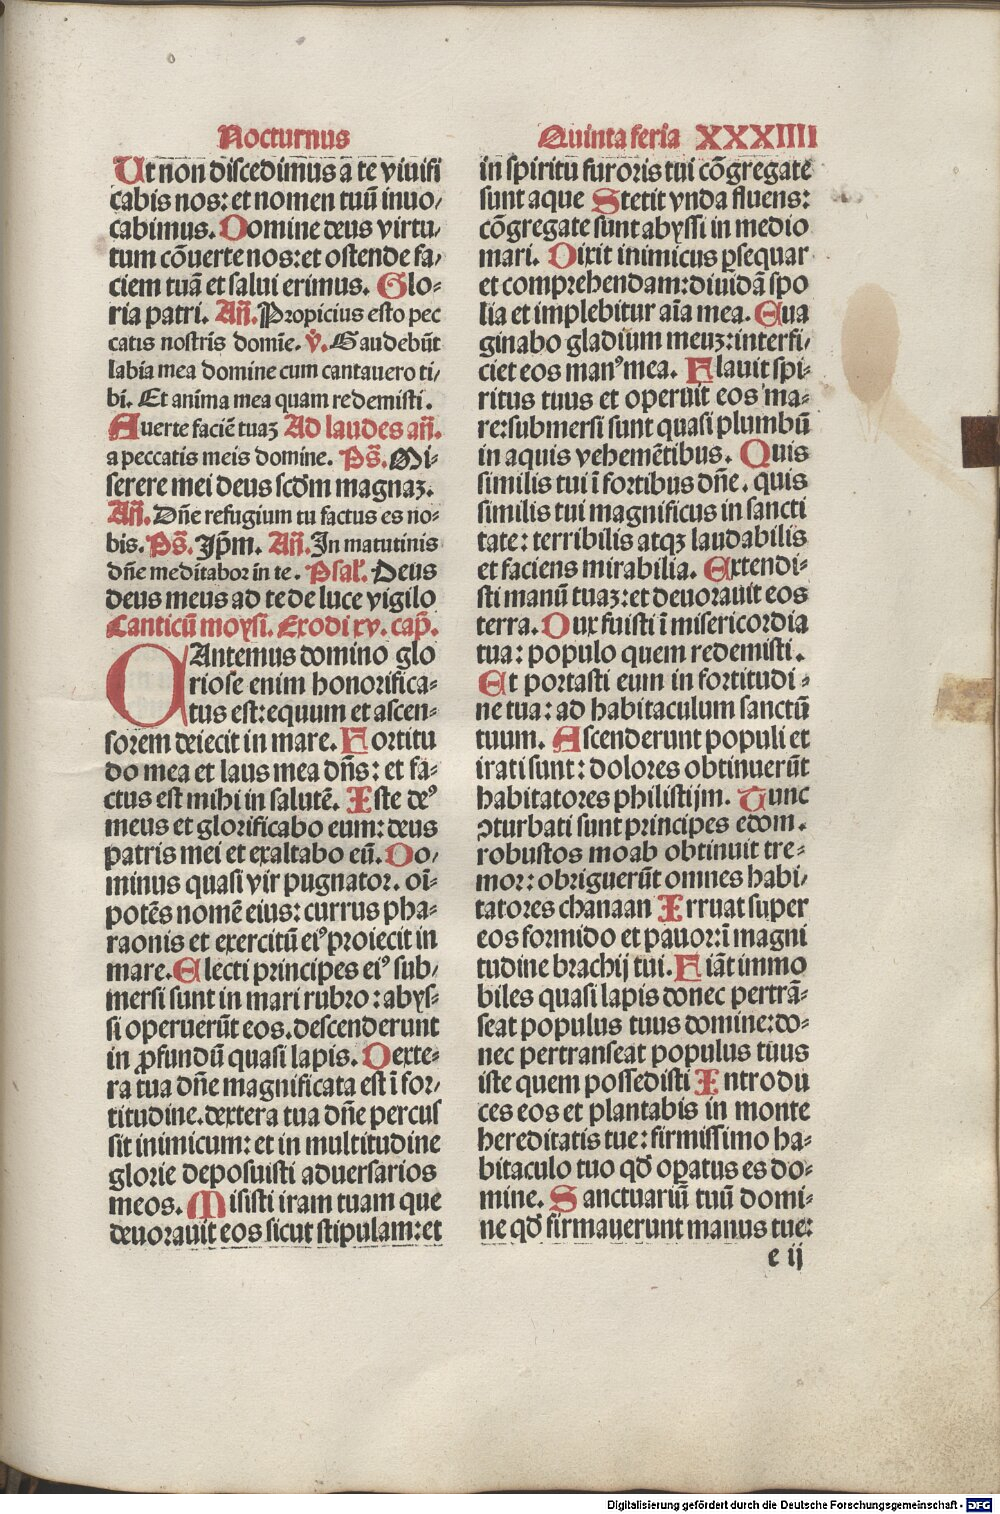 Nocturnus
Ut non discedimus a te viuifi
cabis nos: et nomen tuū inuo/
cabimus. Domine deus virtu/
tum cōuerte nos: et ostende fa/
ciem tuā et salui erimus. Glo⸗
ria patri. Añ. Propicius esto pec
catis nostris domīe. v̄. Gaudebūt
labia mea domine cum cantauero ti/
bi. Et anima mea quam redemisti.
Auerte faciē tuaꝫ Ad laudes añ.
a peccatis meis domine. Ps̄. Mi⸗
serere mei deus scd̄m magnaꝫ.
Añ. Dn̄e refugium tu factus es no⸗
bis. Ps̄. Ip̄m. Añ. In matutinis
dn̄e meditabor in te. Psal̄. Deus
deus meus ad te de luce vigilo
Canticū moysi. Exodi xv. cap̄.
CAntemus domino glo
riose enim honorifica⸗
tus est: equum et ascen⸗
sorem deiecit in mare. Fortitu
do mea et laus mea dn̄s: et fa⸗
ctus est mihi in salutē. Iste deꝰ
meus et glorificabo eum: deus
patris mei et exaltabo eū. Do/
minus quasi vir pugnator. oī⸗
potēs nomē eius: currus pha⸗
raonis et exercitū eiꝰ proiecit in
mare. Electi principes eiꝰ sub/
mersi sunt in mari rubro: abys⸗
si operuerūt eos. descenderunt
in ꝓfundū quasi lapis. Dexte⸗
ra tua dn̄e magnificata est ī for/
titudine. dextera tua dn̄e percus
sit inimicum: et in multitudine
glorie deposuisti aduersarios
meos. Misisti iram tuam que
deuorauit eos sicut stipulam: et
Quinta feria XXXIIII
in spiritū furoris tui cōgregate
sunt aque Stetit vnda fluens:
cōgregate sunt abyssi in medio
mari. Dixit inimicus ꝑsequar
et comprehendam: diuidā spo
lia et implebitur aīa mea. Eua
ginabo gladium meuꝫ: interfi/
ciet eos manꝰ mea. Flauit spi⸗
ritus tuus et operuit eos ma⸗
re: submersi sunt quasi plumbū
in aquis vehemētibus. Quis
similis tui ī fortibus dn̄e. quis
similis tui magnificus in sancti
tate: terribilis atqꝫ laudabilis
et faciens mirabilia. Extendi⸗
sti manū tuaꝫ: et deuorauit eos
terra. Dux fuisti ī misericordia
tua: populo quem redemisti.
Et portasti eum in fortitudi⸗
ne tua: ad habitaculum sanctū
tuum. Ascenderunt populi et
irati sunt: dolores obtinuerūt
habitatores philistijm. Tunc
ꝯturbati sunt principes edom.
robustos moab obtinuit tre⸗
mor: obriguerūt omnes habi/
tatores chanaan Irruat super
eos formido et pauor: ī magni
tudine brachij tui. Fiāt immo
biles quasi lapis donec pertrā⸗
seat populus tuus domine: do⸗
nec pertranseat populus tuus
iste quem possedisti Introdu
ces eos et plantabis in monte
hereditatis tue: firmissimo ha⸗
bitaculo tuo qd̄ oꝑatus es do⸗
mine. Sanctuariū tuū domi⸗
ne qd̄ firmauerunt manus tue:
e ij
Digitalisierung gefördert durch die Deutsche Forschungsgemeinschaft - DFG